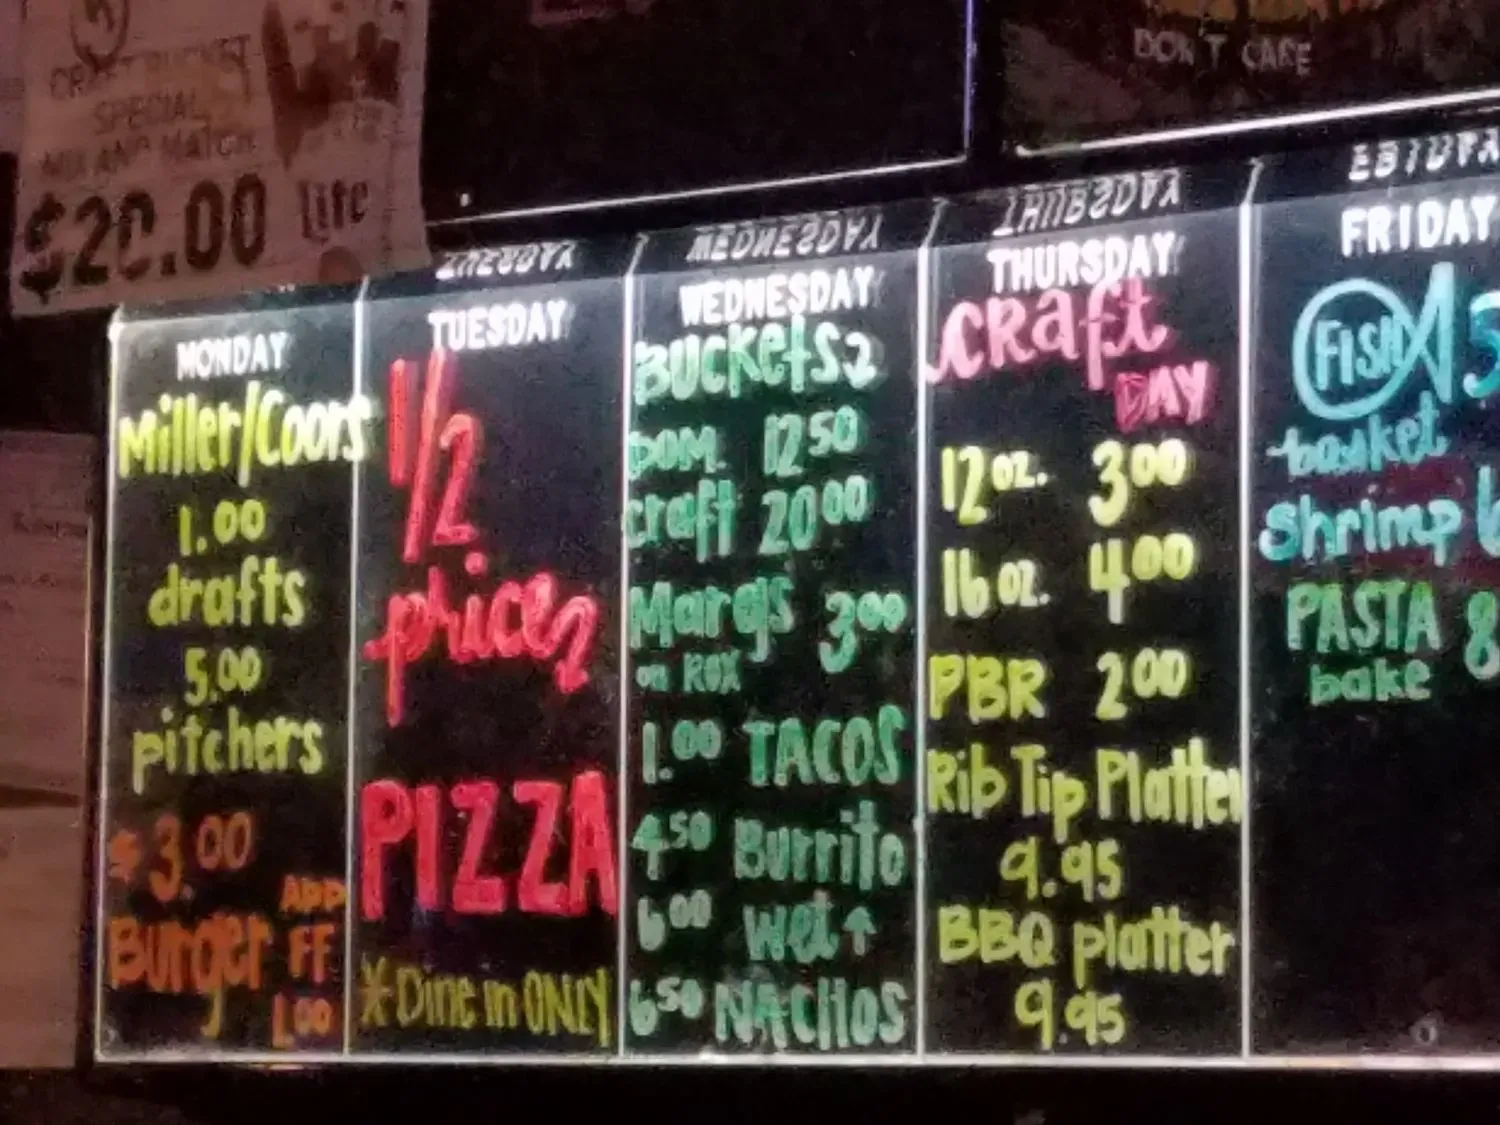 CRAFT BUCKET
SPECIAL
MIX AND MATCH
$20.00 Lite
DON'T CARE
MONDAY
Miller/Coors
1.00
drafts
5.00
pitchers
$3.00
Burger
ADD
FF
1.00
TUESDAY
1/2
price
PIZZA
*Dine in ONLY
WEDNESDAY
Buckets
DOM. 12 50
craft 20 00
Margs 3 00
on ROX
1.00 TACOS
4 50 Burrito
6 00 wet ↑
6 50 NACHOS
THURSDAY
CRaft
DAY
12 oz. 3 00
16 oz. 4 00
PBR 2 00
Rib Tip Platter
9.95
BBQ platter
9.95
FRIDAY
FISH
basket
shrimp
PASTA 8
bake